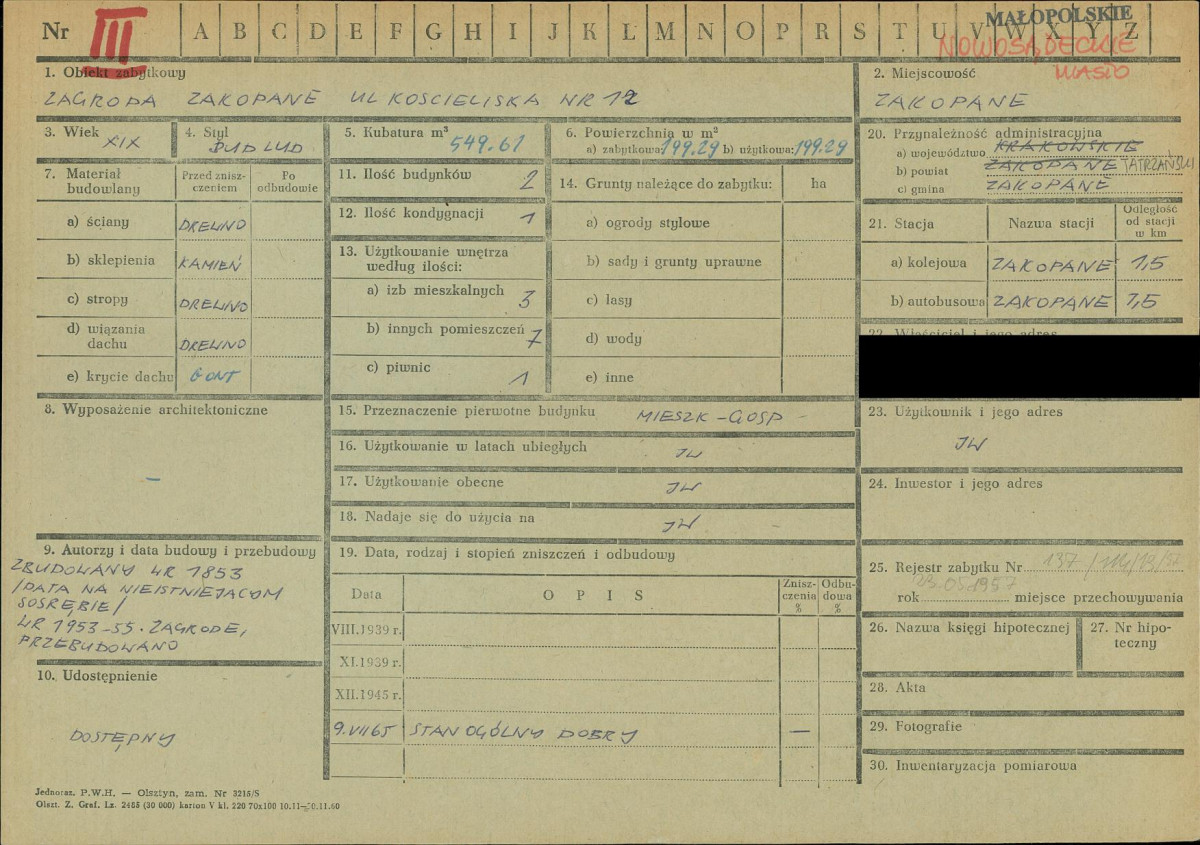 Nr III A B C D E F G H I J K L M N O P R S T U V W X Y Z
MAŁOPOLSKIE
NOWOSĄDECKIE
MIASTO
1. Obiekt zabytkowy
ZAGRODA ZAKOPANE UL KOSCIELISKA NR 12
2. Miejscowość
ZAKOPANE
3. Wiek
XIX
4. Styl
BUD LUD
5. Kubatura m³
549.61
6. Powierzchnia w m²
a) zabytkowa: 199.29 b) użytkowa: 199.29
20. Przynależność administracyjna
a) województwo KRAKOWSKIE
b) powiat ZAKOPANE TATRZAŃSKI
c) gmina ZAKOPANE
7. Materiał budowlany
Przed zniszczeniem
Po odbudowie
a) ściany DREWNO
b) sklepienia KAMIEŃ
c) stropy DREWNO
d) wiązania dachu DREWNO
e) krycie dachu GONT
8. Wyposażenie architektoniczne
—
9. Autorzy i data budowy i przebudowy
ZBUDOWANY WR 1853
/DATA NA NIEISTNIEJĄCYM
SOSRĘBIE/
WR 1953-55. ZAGRODE,
PRZEBUDOWANO
10. Udostępnienie
DOSTĘPNY
11. Ilość budynków 2
12. Ilość kondygnacji 1
13. Użytkowanie wnętrza według ilości:
a) izb mieszkalnych 3
b) innych pomieszczeń 7
c) piwnic 1
14. Grunty należące do zabytku: ha
a) ogrody stylowe
b) sady i grunty uprawne
c) lasy
d) wody
e) inne
15. Przeznaczenie pierwotne budynku MIESZK-GOSP -
16. Użytkowanie w latach ubiegłych JW
17. Użytkowanie obecne JW
18. Nadaje się do użycia na JW -
19. Data, rodzaj i stopień zniszczeń i odbudowy
Data
OPIS
Zniszczenia %
Odbudowa %
VIII.1939 r.
XI.1939 r.
XII.1945 r.
9.VII65 STAN OGÓLNY DOBRY —
21. Stacja
Nazwa stacji
Odległość od stacji w km
a) kolejowa ZAKOPANE 1,5
b) autobusowa ZAKOPANE 1,5
22. Właściciel i jego adres
23. Użytkownik i jego adres
JW
24. Inwestor i jego adres
25. Rejestr zabytku Nr 137
rok 23.05.1957 miejsce przechowywania
26. Nazwa księgi hipotecznej
27. Nr hipoteczny
28. Akta
29. Fotografie
30. Inwentaryzacja pomiarowa
Jednoraz. P.W.H. — Olsztyn, zam. Nr 3215/S
Olszt. Z. Graf. Lz. 2485 (30 000) karton V kl. 220 70x100 10.11—30.11.60